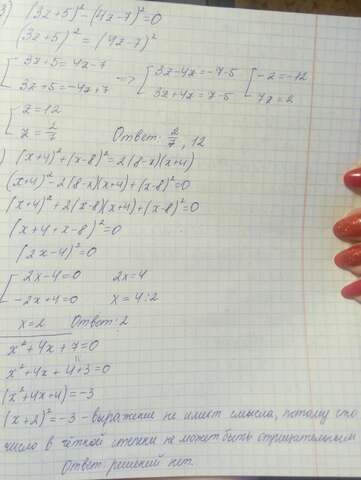 3) (3x+5)²-(4x-7)²=0
(3x+5)²=(4x-7)²
[3x+5=4x-7
3x+5=-4x+7 => [3x-4x=-7-5
3x+4x=7-5 [-x=-12
7x=2
[x=12
x=2/7 Ответ: 2/7, 12
) (x+4)²+(x-8)²=2(8-x)(x+4)
(x+4)²-2(8-x)(x+4)+(x-8)²=0
(x+4)²+2(x-8)(x+4)+(x-8)²=0
(x+4+x-8)²=0
(2x-4)²=0
[2x-4=0 2x=4
-2x+4=0 x=4:2
x=2 Ответ: 2
x²+4x+7=0
x²+4x+4+3=0
(x²+4x+4)=-3
(x+2)²=-3 - выражение не имеет смысла, потому что
число в чётной степени не может быть отрицательным
Ответ: решений нет.